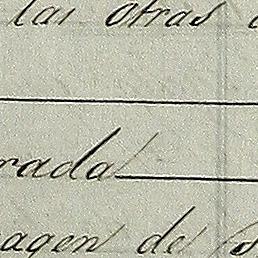 las otras
rada
agen de